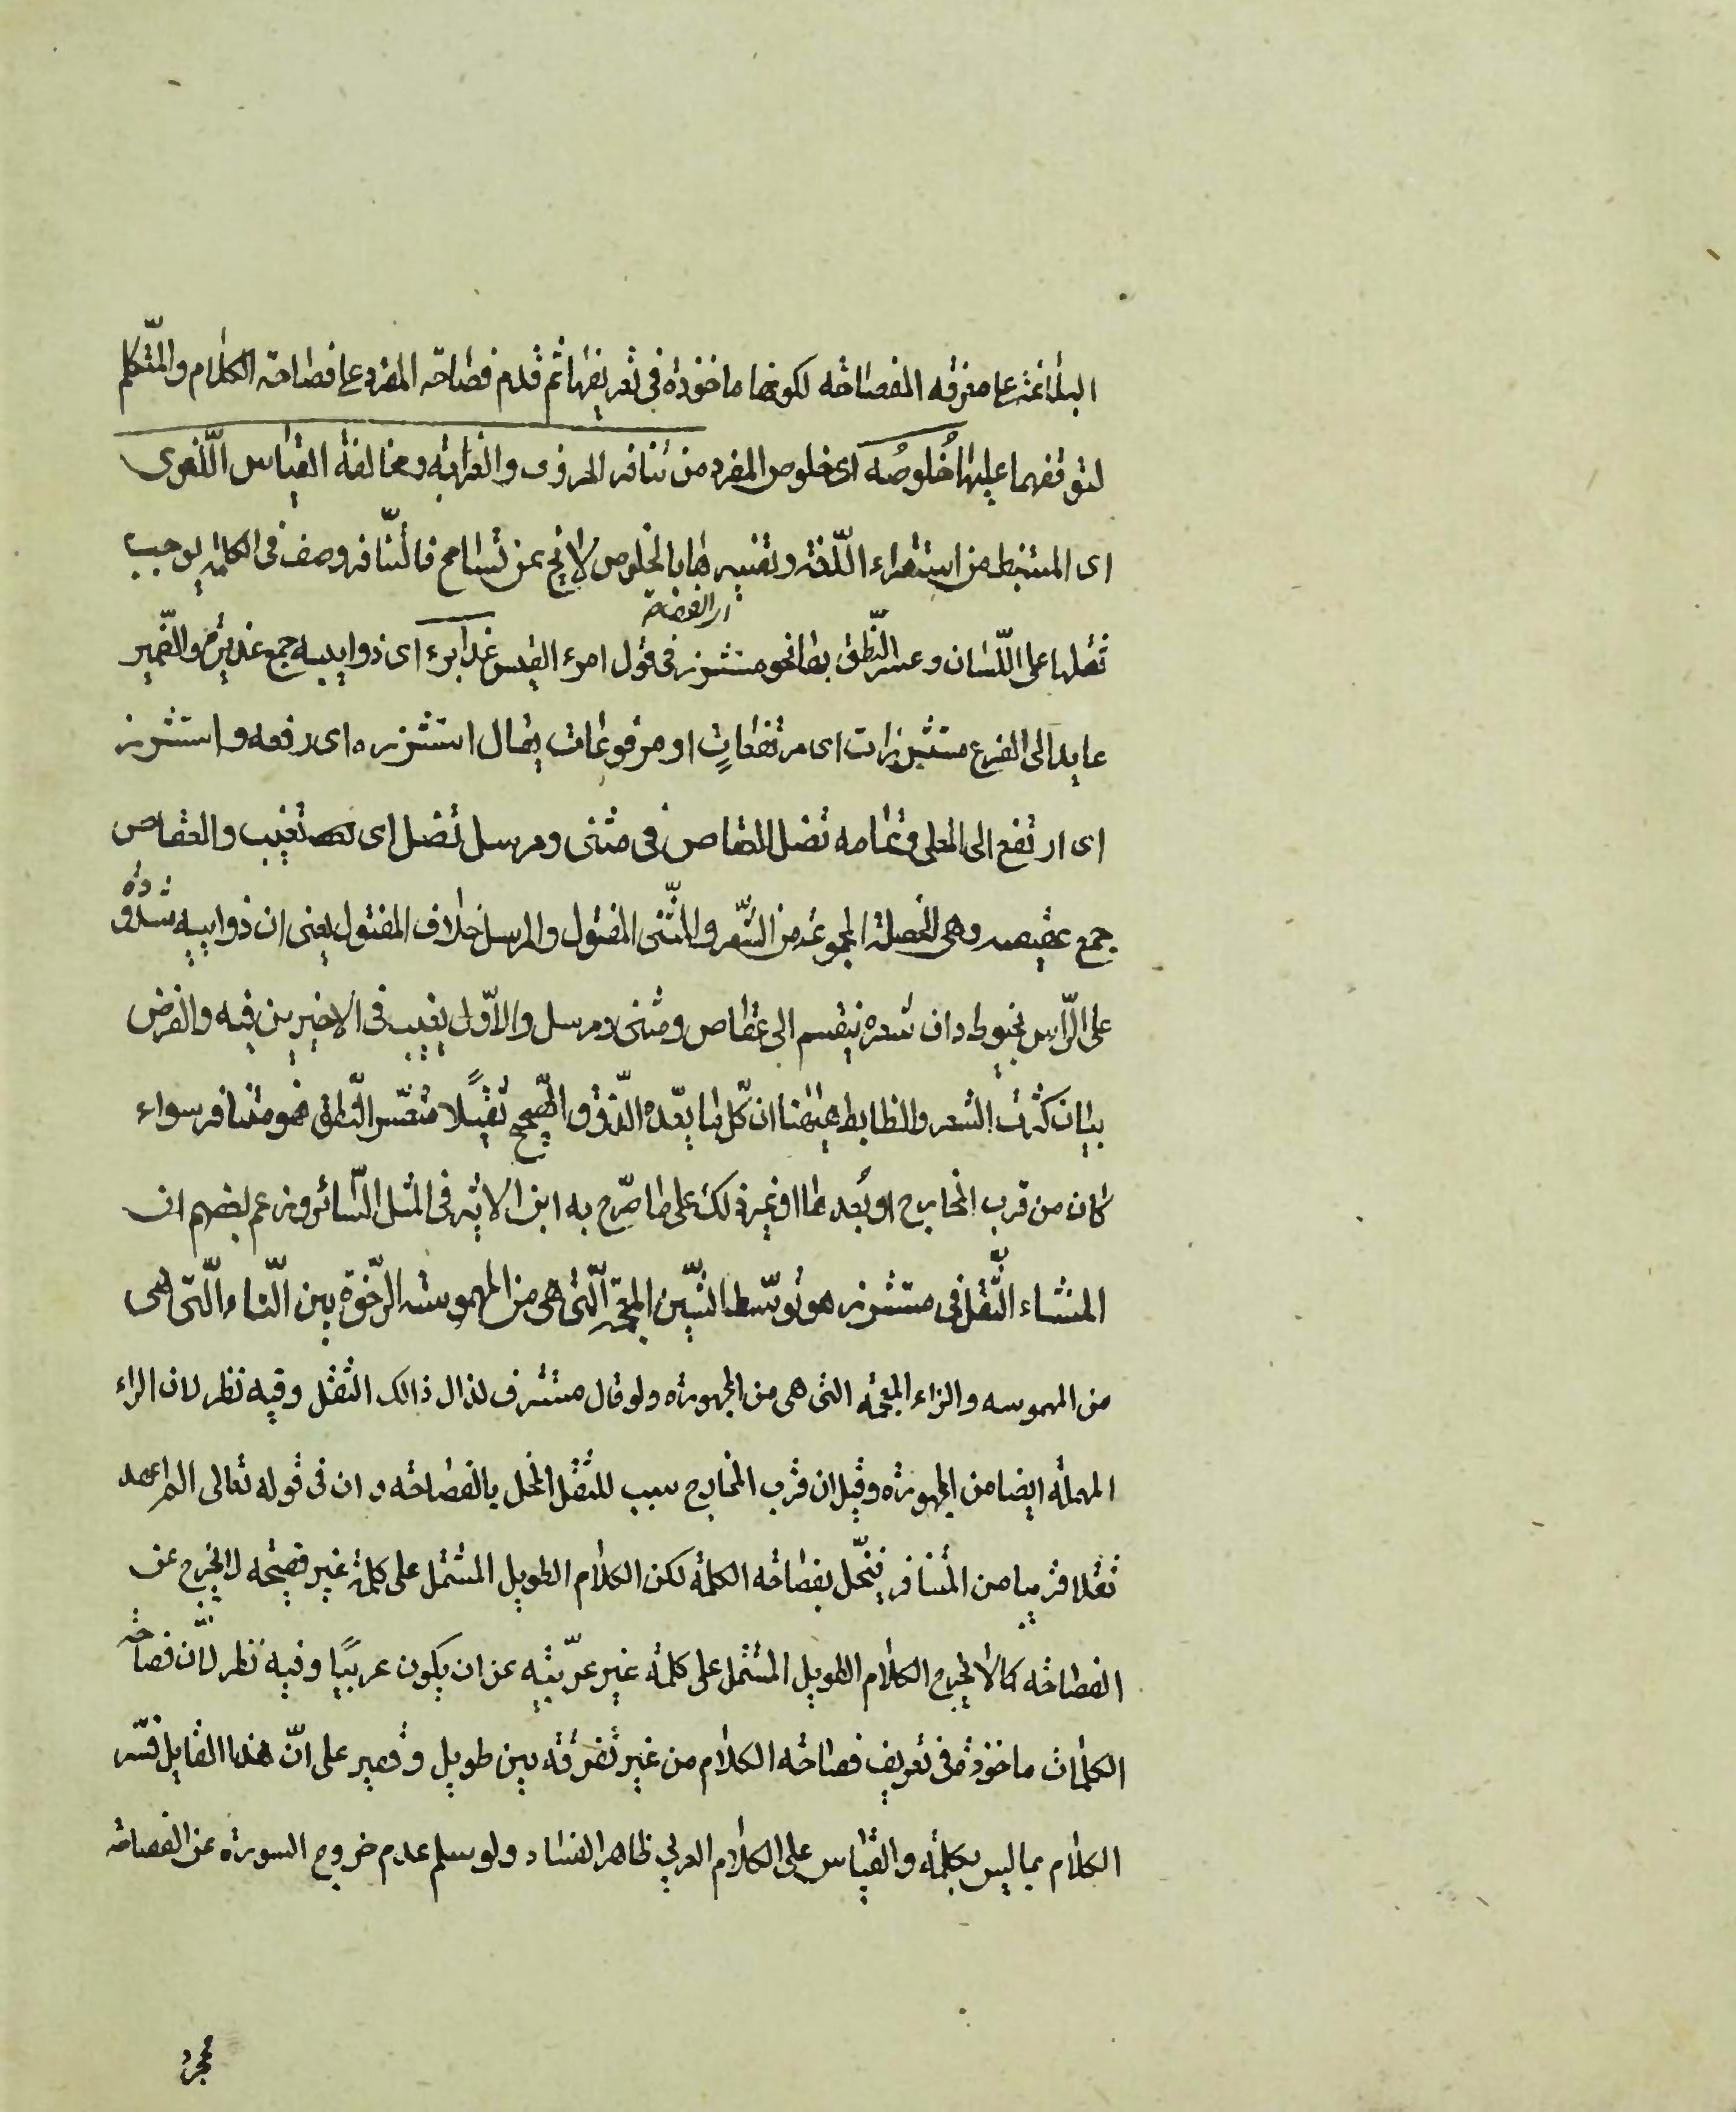 البلاغة على معرفة الفصاحة لكونها ماخوذة فى تعريفها ثم قدم فصاحة المفرد على فصاحة الكلام والمتكلم
لتوقفهما عليها خُلوصُه اى خلوص المفرد من تنافر الحروف والغرابة ومخالفة القياس اللّغوى
اى المستنبط من استقراء اللّغة وتفسيرها بالخلوص لا يخ عن تسامح فالتّنافر وصف فى الكلمة يوجب
ثقلها على اللّسان وعسر النّطق بها نحو مستشزر فى قول امرء القيس غدايره اى ذوايبه جمع غديرة والضّمير
عايد الى الفرع مستشزرات اى مرتفعاتٍ او مرفوعات يقال استشزره اى رفعه واستشزر
اى ارتفع الى العلى وتمامه تضل العقاص فى مثنى ومرسل تضل اى تغيب والعقاص
جمع عقيصه وهى الخصلة المجموعة من الشّعر والمثّنى المفتول والمرسل خلاف المفتول يعنى ان ذوايبه مشدودة
على الرّاس بخيوط وان شعره ينقسم الى عقاص ومثنى ومرسل والاوّل يغيب فى الاخيرين فيه والغرض
بيان كثرت الشعر والظابط هيهنا ان كلّ ما يعّده الذّوق الصّحيح ثقيلًا متعسّر النّطق فهو متنافر سواء
كان من قرب المخارج او بُعدها او غير ذلك على ما صّرح به ابن الاثير فى المثل السّائر وزعم بعضهم ان
المنشاء الثّقل فى مستشزر هو توسّط الشّين المعجمة الّتى هى من المهموسة الرّخوة بين التّاء الّتى هى
من المهموسه والزاء المعجمة التى هى من المجهورة ولو قال مستشرف لذال ذالك الثقل وفيه نظر لان الراء
المهملة ايضا من المجهورة وقيل ان قرب المخارج سبب للثقل المخل بالفصاحة وان فى قوله تعالى الم اعهد
ثقلا قريبا من المتنافر فيخّل بفصاحة الكلمة لكن الكلام الطويل المشتمل على كلمة غير فصيحة لا يخرج عن
الفصاحة كما لا يخرج الكلام الطويل المشتمل على كلمة غير عربّيه عن ان يكون عربيًا وفيه نظر لانّ فصاحة
الكلمات ماخوذة فى تعريف فصاحة الكلام من غير تفرقة بين طويل وقصير على انّ هذا القايل فسّر
الكلام بما ليس بكلمة والقياس على الكلام العربي ظاهر الفساد ولو سلم عدم خروج السورة عن الفصاحة